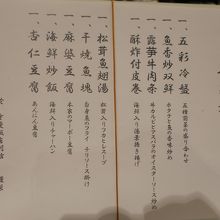 一、五彩冷盤
五種前菜の盛り合わせ
一、魚香炒双鮮
ホタテと海老の香味炒め
一、露笋牛肉条
牛カルビとアスパラのオイスターソース炒め
一、酥炸付皮巻
海鮮入り湯葉巻き揚げ
一、松茸魚翅湯
松茸入りフカヒレスープ
一、干焼魚塊
白身魚のフライ チリソース掛け
一、麻婆豆腐
本家のマーボー豆腐
一、海鮮炒飯
海鮮入りチャーハン
一、杏仁豆腐
あんにん豆腐